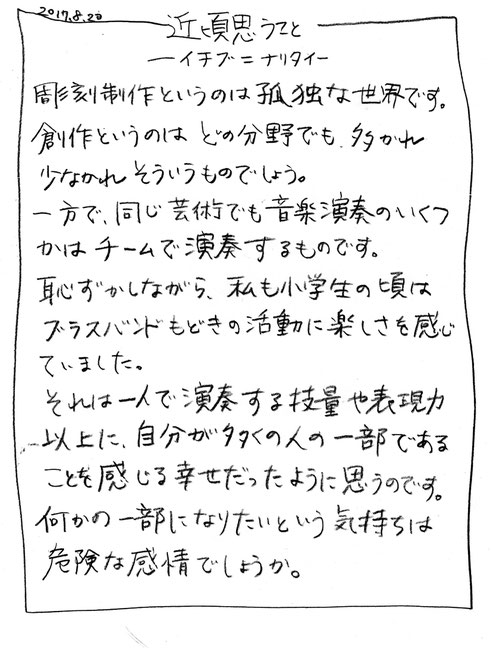 2017.8.20
近頃思うこと
―イチブニナリタイ―
彫刻制作というのは孤独な世界です。
創作というのは どの分野でも、多かれ
少なかれ そういうものでしょう。
一方で、同じ芸術でも音楽演奏のいくつ
かは チームで演奏するものです。
恥ずかしながら、私も小学生の頃は
ブラスバンドもどきの活動に楽しさを感じ
ていました。
それは一人で演奏する技量や表現力
以上に、自分が多くの人の一部である
ことを感じる幸せだったように思うのです。
何かの一部になりたいという気持ちは
危険な感情でしょうか。